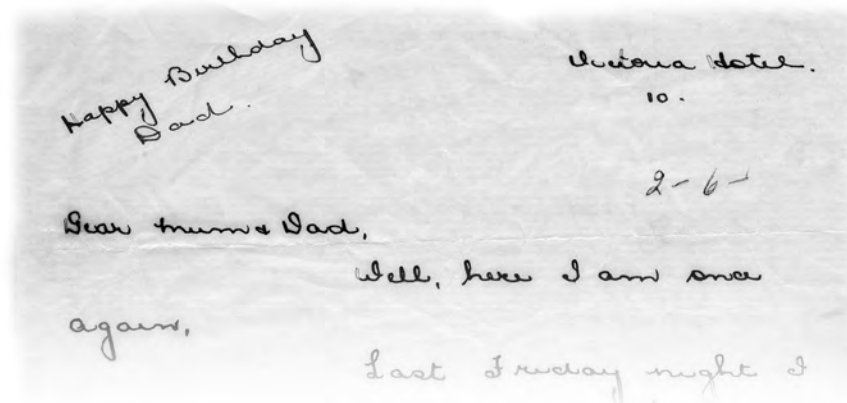 Happy Birthday
Dad.
Victoria Hotel.
10.
2-6-
Dear Mum & Dad,
Well, here I am once
again,
Last Friday night I